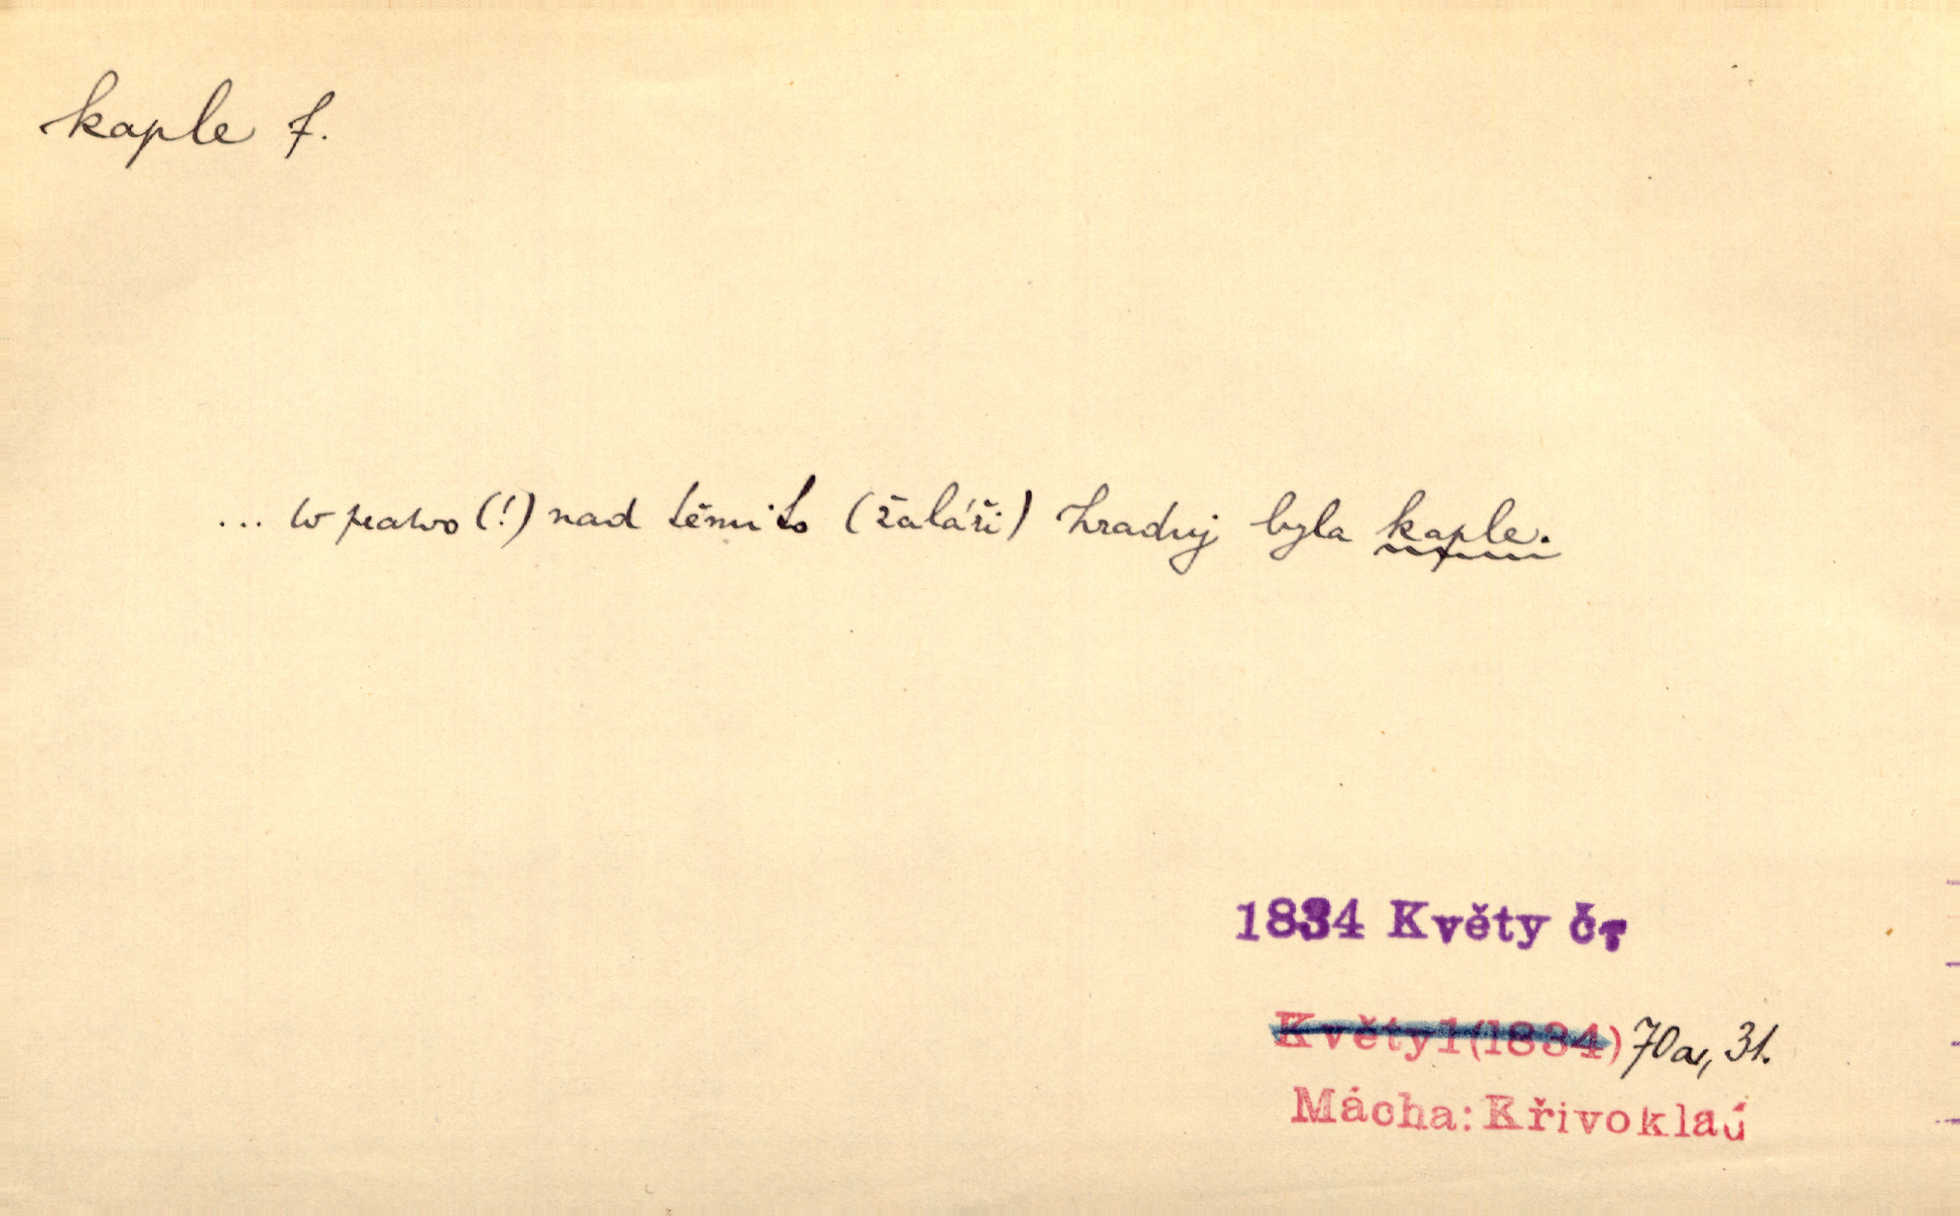 kaple f.
... w prawo (!) nad těmito (žaláři) hradnj byla kaple.
1834 Květy čr
Květy1(1834) 70a, 31.
Mácha: Křivoklad